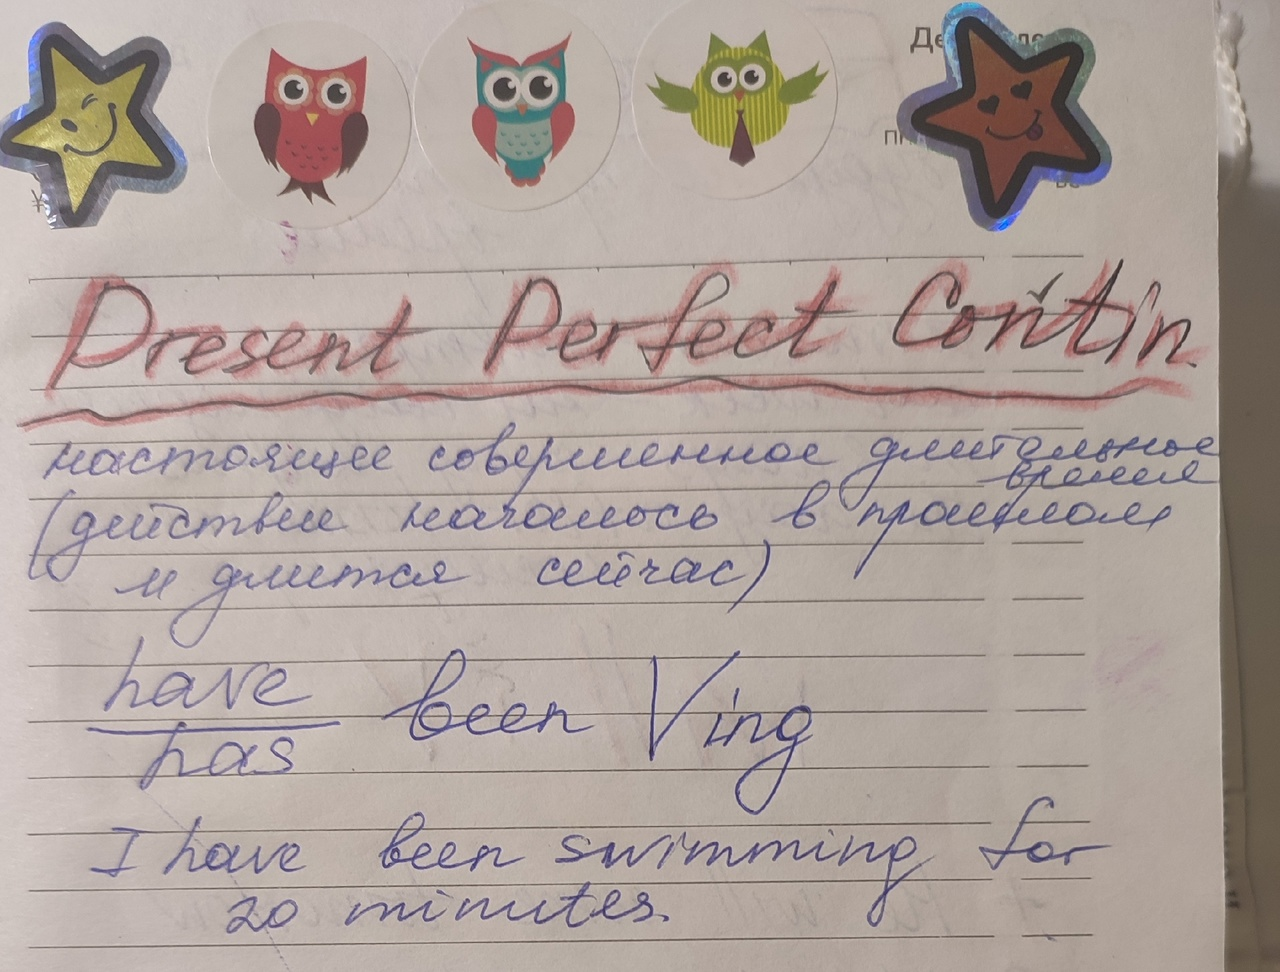 Present Perfect Contin.
настоящее совершенное длительное
время
(действие началось в прошлом
и длится сейчас)
have
has
been Ving
I have been swimming for
20 minutes.